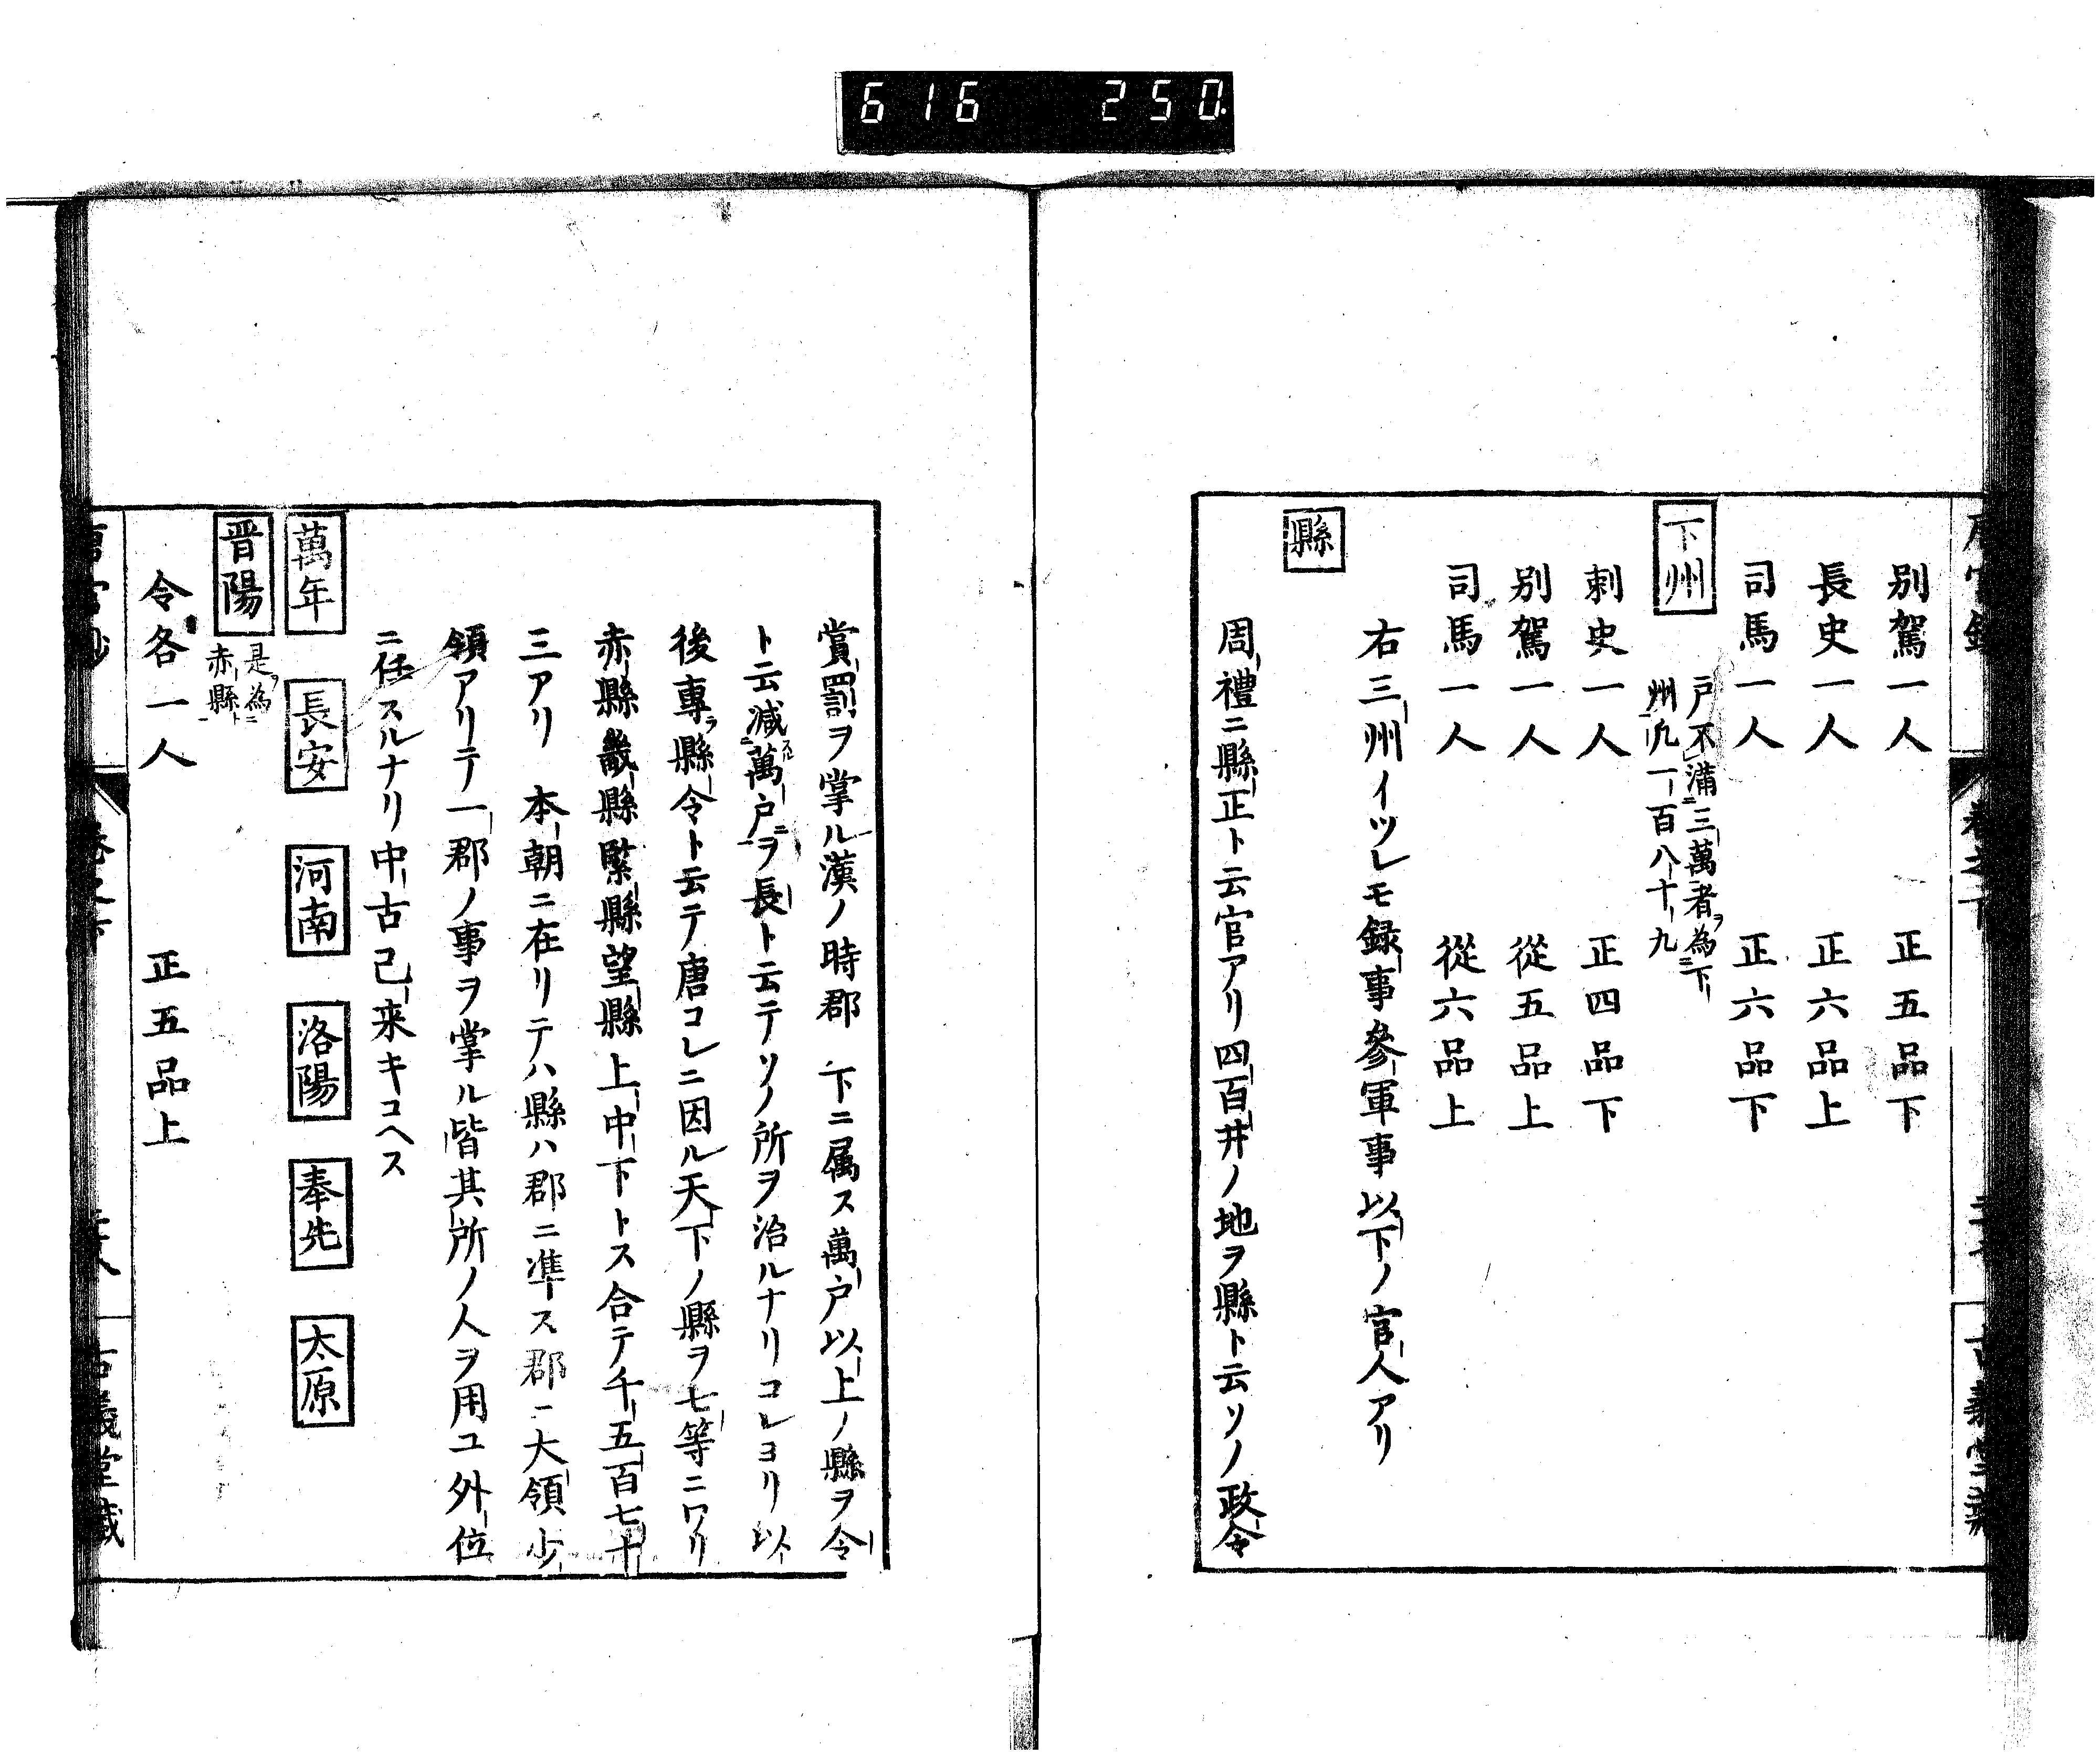 616 250
别駕一人 正五品下
長史一人 正六品上
司馬一人 正六品下
下州 戸不滿三萬者ヲ為下
州凡一百八十九
刺史一人 正四品下
别駕一人 從五品上
司馬一人 從六品上
右三州イツレモ録事參軍事以下ノ官人アリ
縣
周禮ニ縣正ト云官アリ四百井ノ地ヲ縣ト云ソノ政令
賞罰ヲ掌ル漢ノ時郡下ニ属ス萬戸以上ノ縣ヲ令
ト云減萬戸ヲ長ト云テソノ所ヲ治ルナリコレヨリ以
後專ラ縣令ト云テ唐コレニ因ル天下ノ縣ヲ七等ニワリ
赤縣畿縣緊縣望縣上中下トス合テ千五百七十
三アリ 本朝ニ在リテハ縣ハ郡ニ準ス郡ニ大領少
領アリテ一郡ノ事ヲ掌ル皆其所ノ人ヲ用ユ外位
ニ任スルナリ中古已来キコヘス
萬年 長安 河南 洛陽 奉先 太原
晋陽 是ヲ為ニ
赤縣ト
令各一人 正五品上